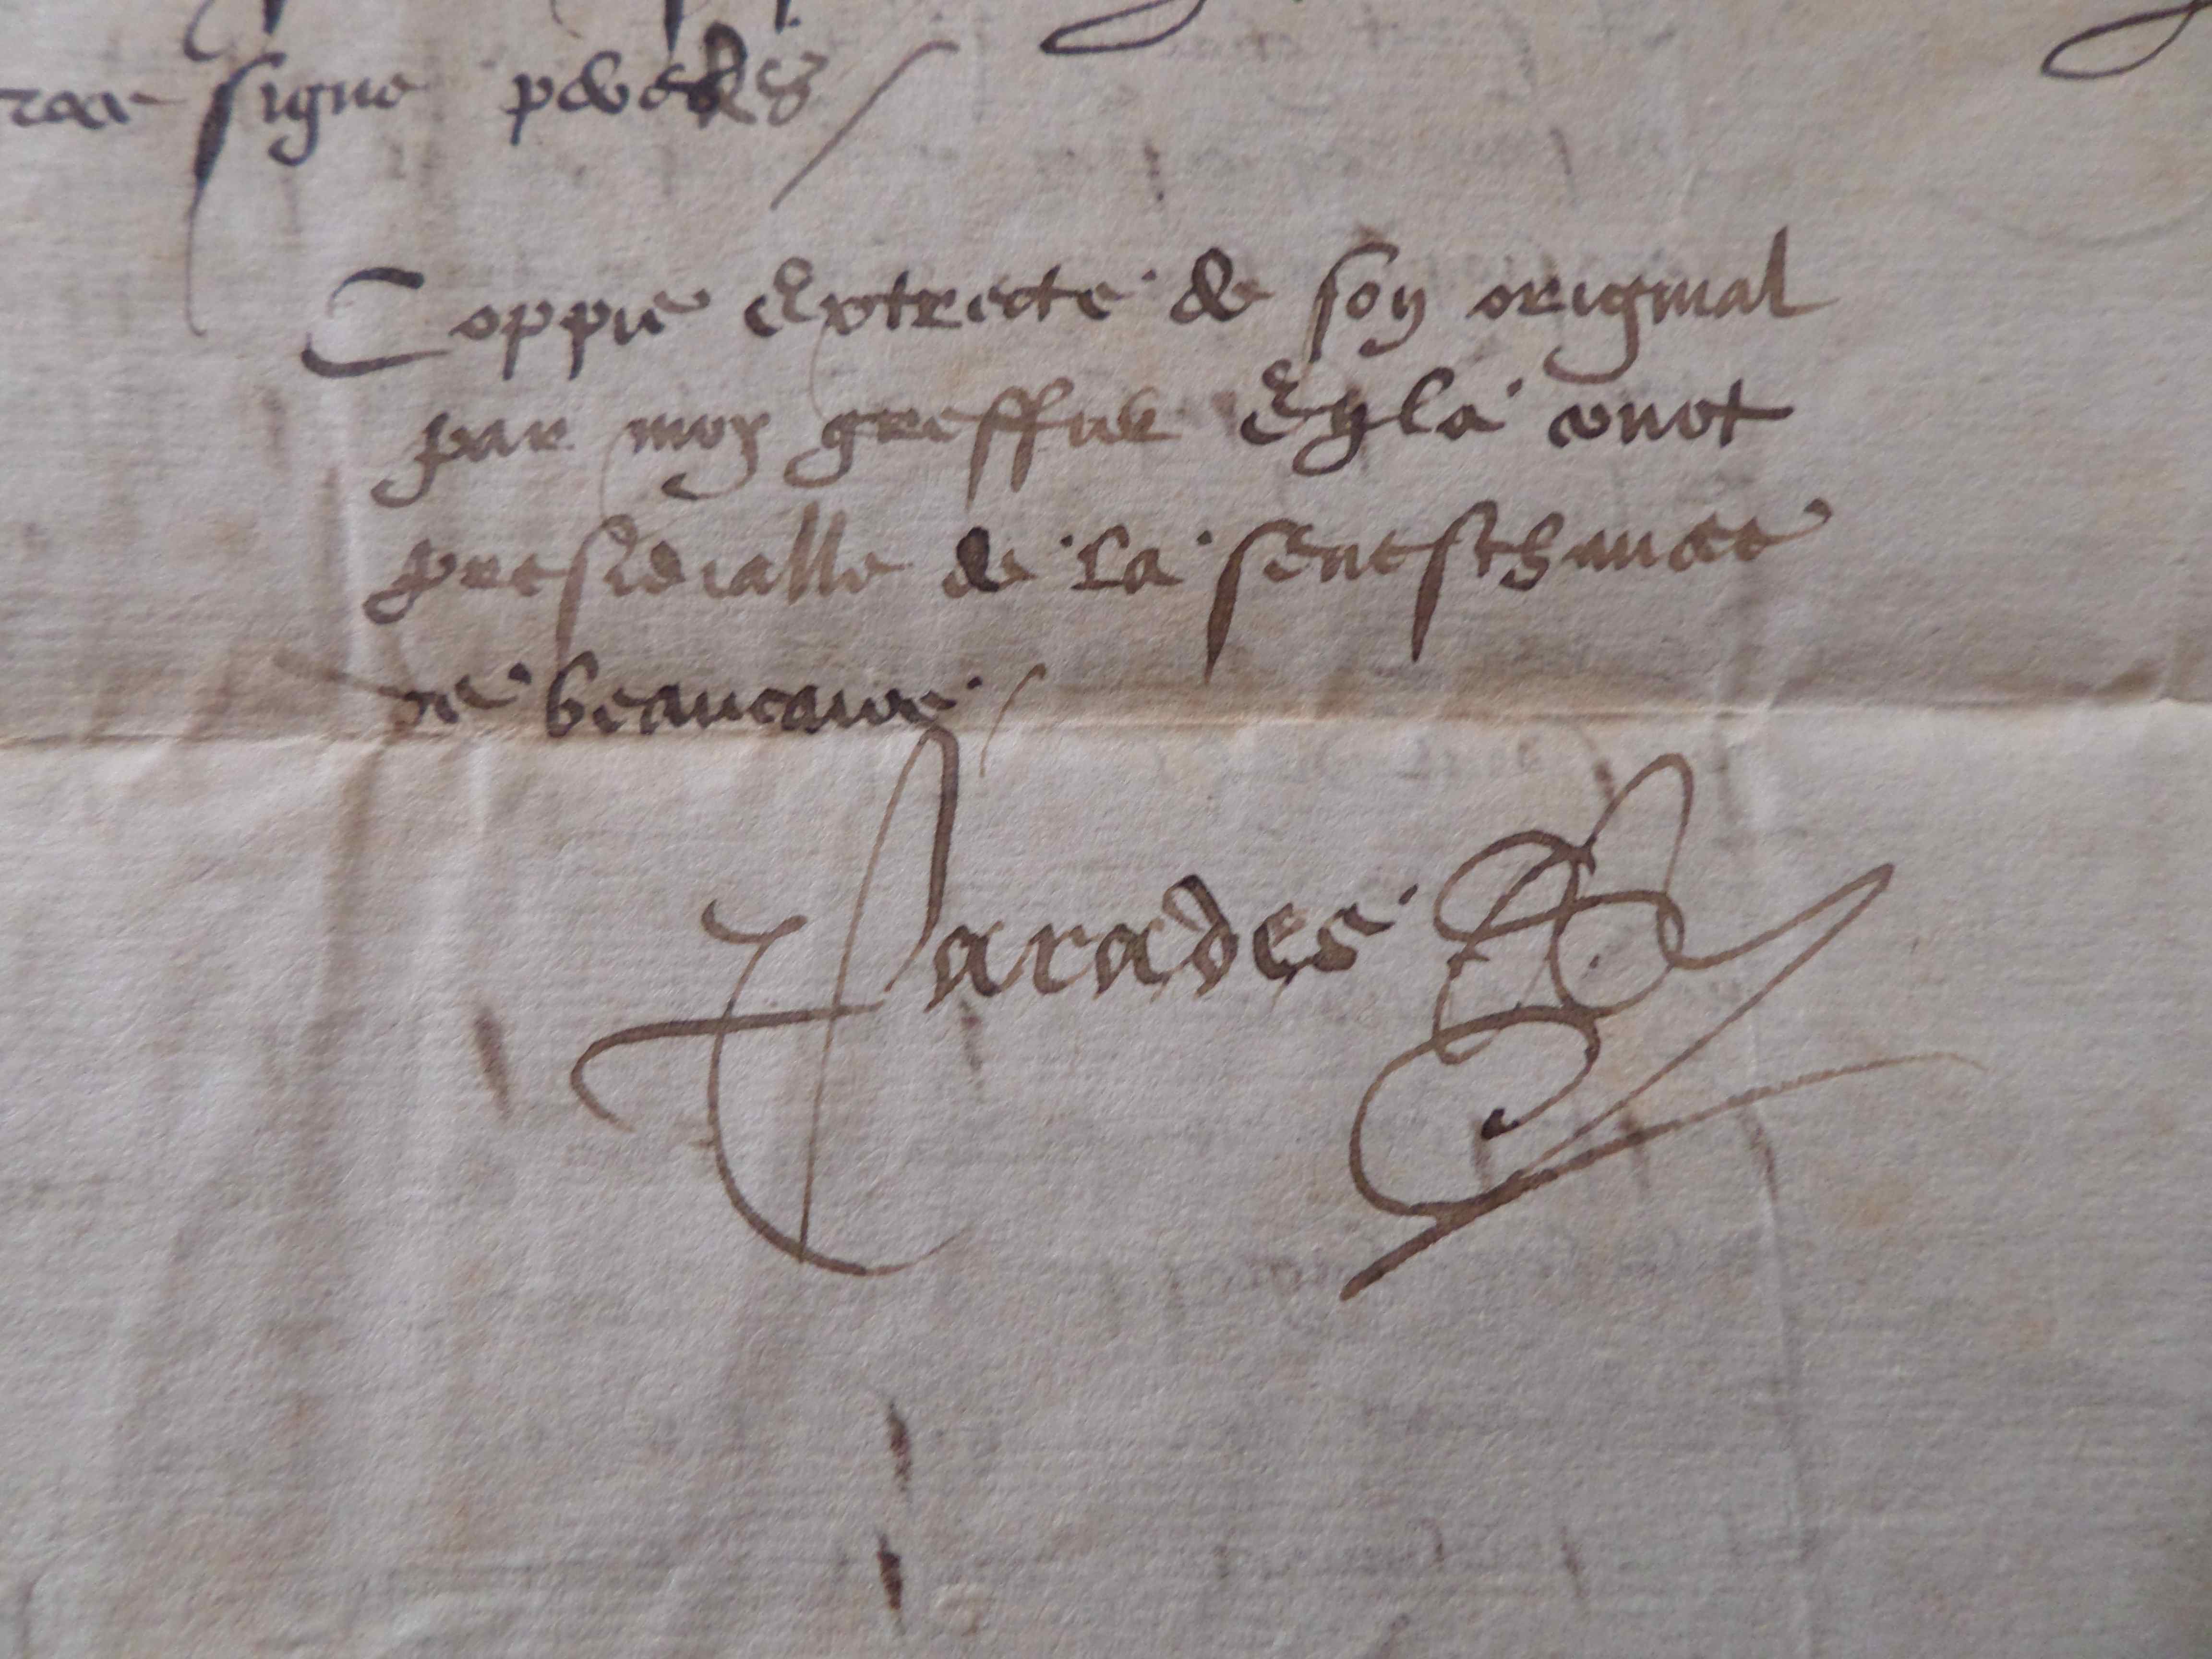 signe
Coppie extrecte de son original
par moy greffier en la court
presidialle de la seneschaucee
de beaucaire
Parades